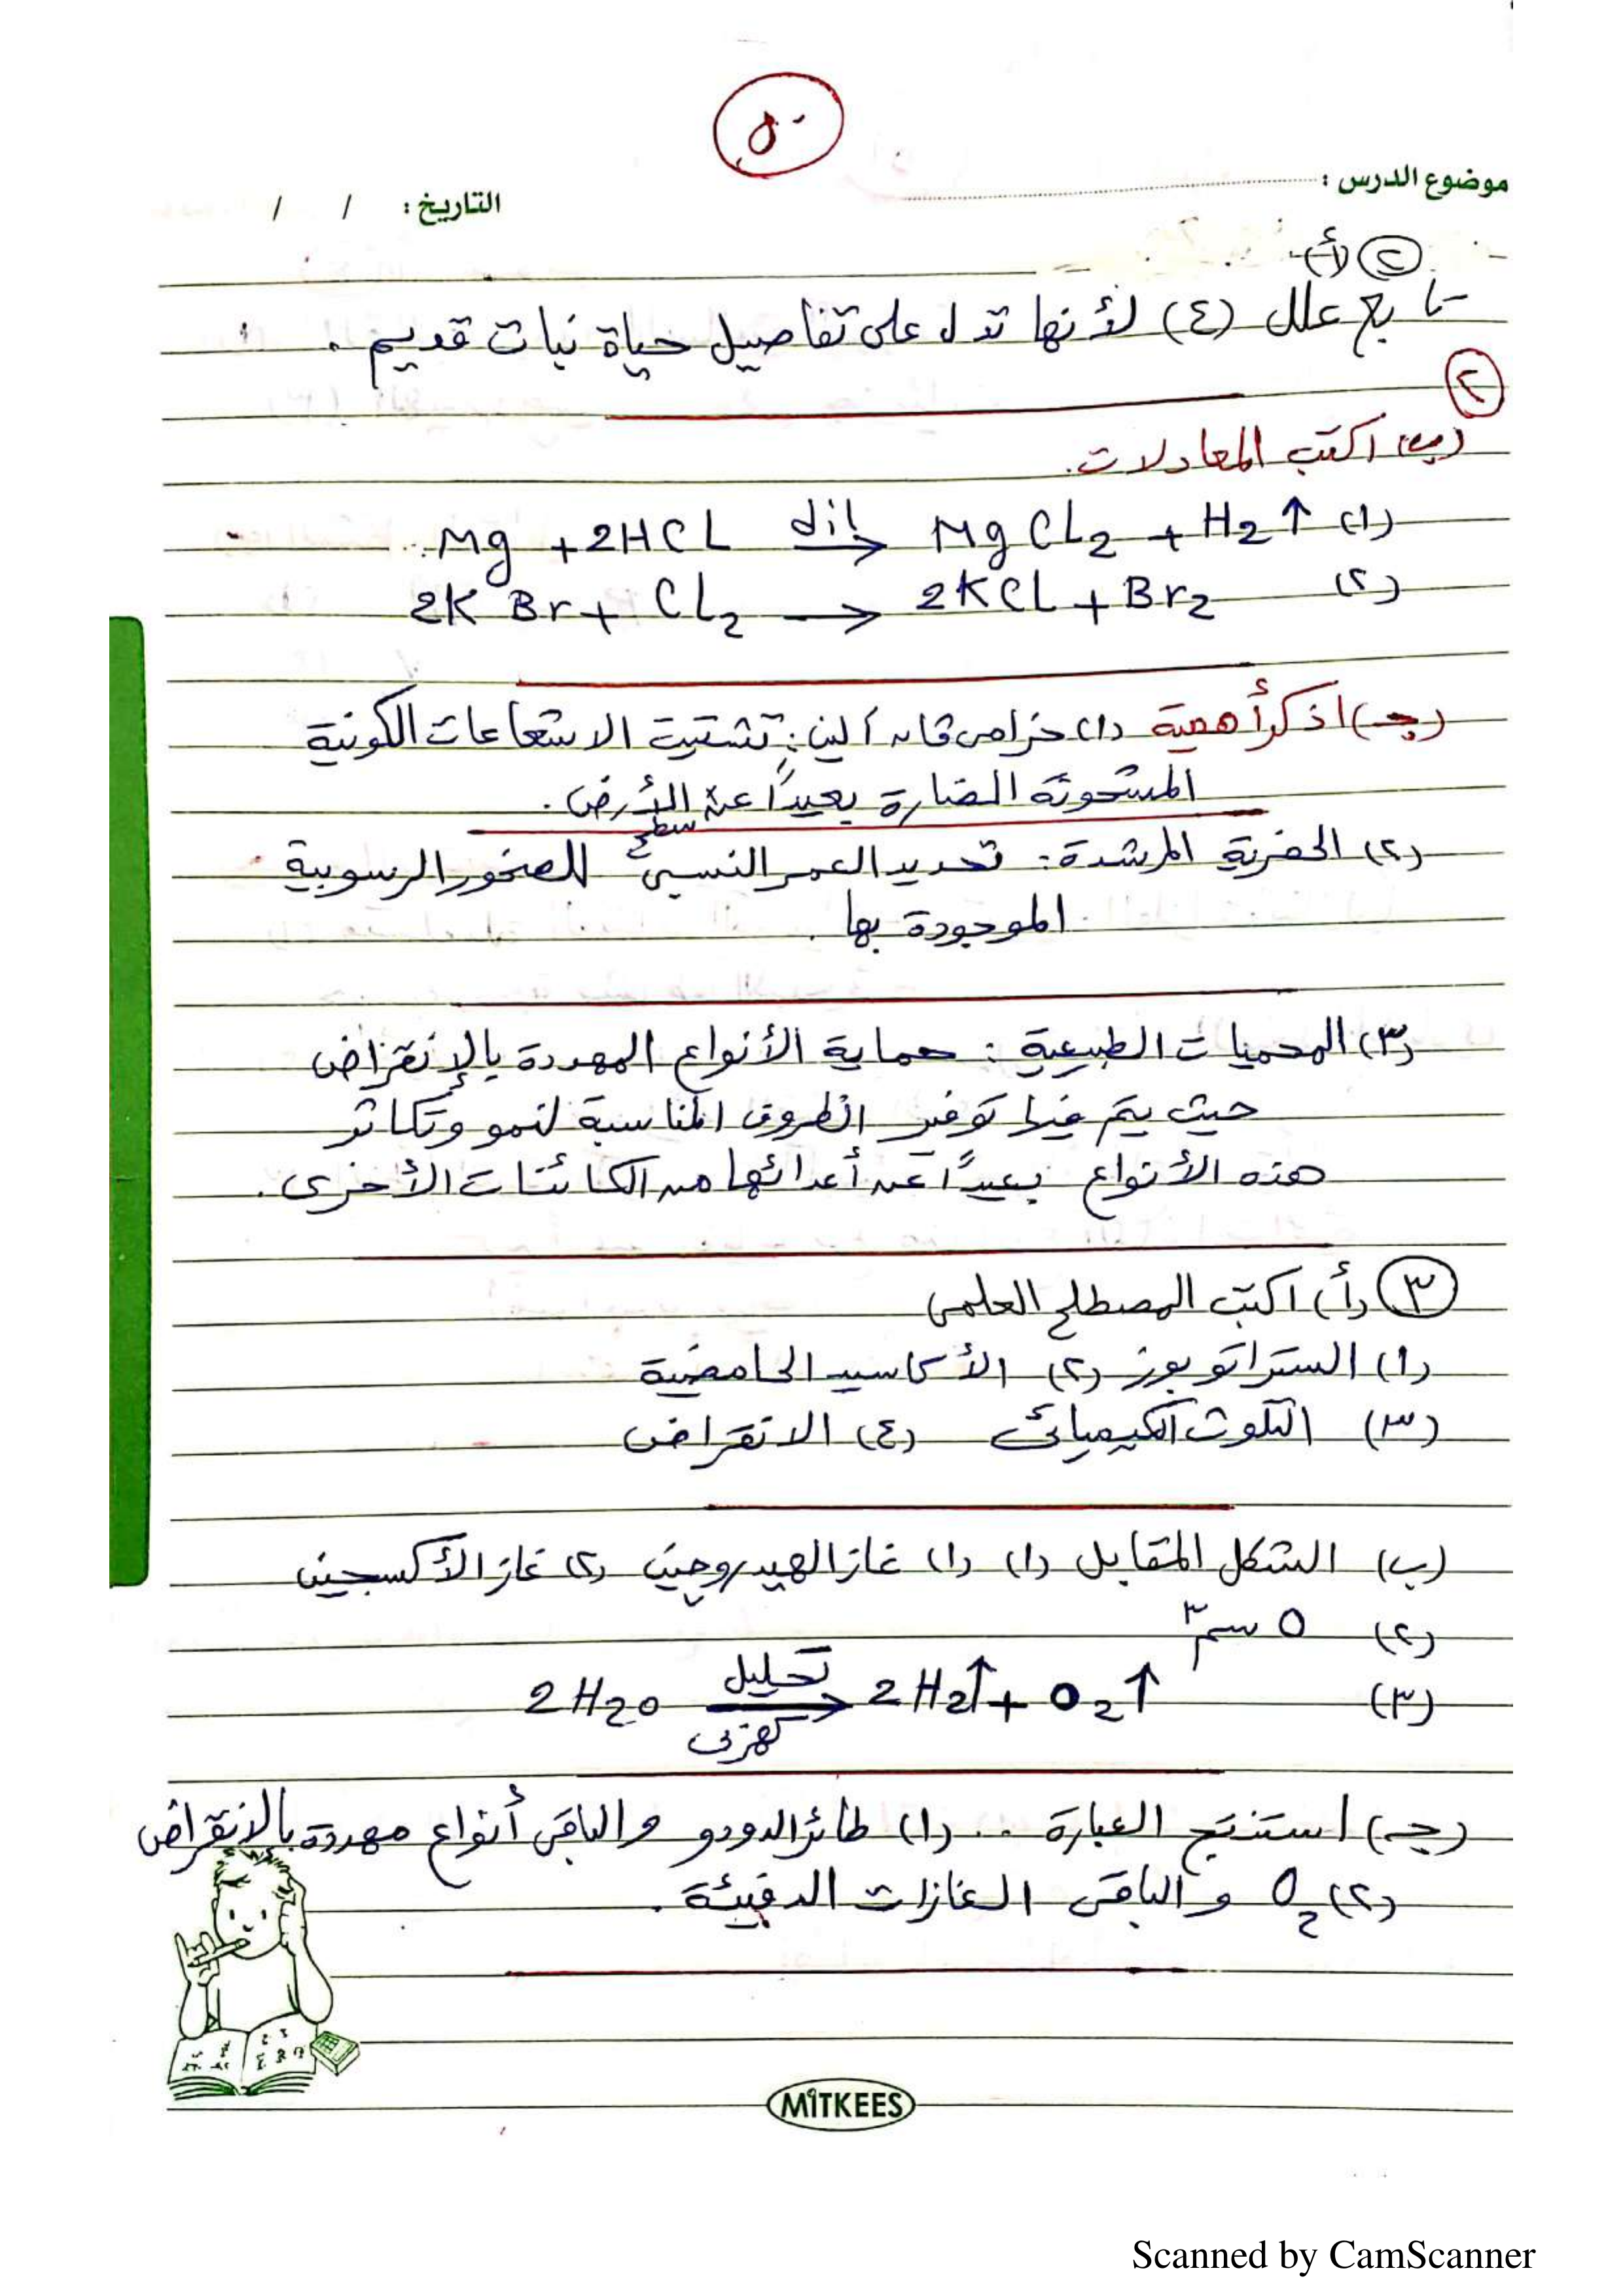 ٥٠
موضوع الدرس :
التاريخ : / /
(٢) (أ)
تابع علل (٤) لأنها تدل على تفاصيل حياة نبات قديم .
(٢)
(ب) اكتب المعادلات .
(١) Mg + 2HCL dil→ MgCL2 + H2 ↑
(٢) 2KBr + CL2 → 2KCL + Br2
(جـ) اذكر أهمية (١) حزامى ڤان ألين : تشتيت الاشعاعات الكونية
المشحونة الضارة بعيداً عن الأرض .
(٢) الحفرية المرشدة : تحديد العمر النسبى للصخور الرسوبية
الموجودة بها .
(٣) المحميات الطبيعية : حماية الأنواع المهددة بالإنقراض
حيث يتم فيها توفير الظروف المناسبة لنمو وتكاثر
هذه الأنواع بعيداً عن أعدائها من الكائنات الأخرى .
(٣) (أ) اكتب المصطلح العلمى
(١) الستراتوبوز (٢) الأكاسيد الحامضية
(٣) التلوث الكيميائى (٤) الانقراض
(ب) الشكل المقابل (١) (١) غاز الهيدروجين (٢) غاز الأكسجين
(٢) ٥ سم٣
(٣) 2H2O تحليل كهربى→ 2H2↑ + O2↑
(جـ) استنتج العبارة .. (١) طائر الدودو والباقى أنواع مهددة بالانقراض
(٢) O2 والباقى الغازات الدفيئة .
MITKEES
Scanned by CamScanner